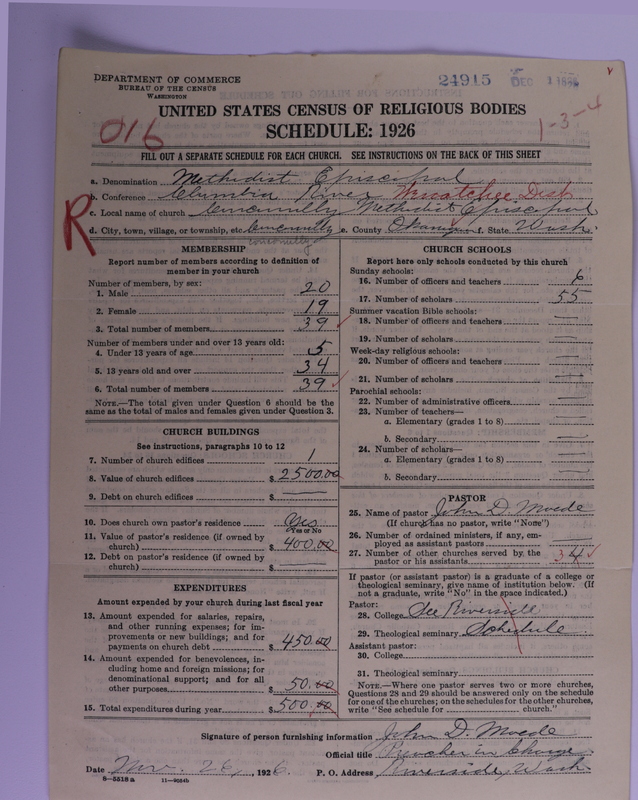 DEPARTMENT OF COMMERCE
BUREAU OF THE CENSUS
WASHINGTON
24915 DEC 1 1926
UNITED STATES CENSUS OF RELIGIOUS BODIES
SCHEDULE: 1926
016
1-3-4
FILL OUT A SEPARATE SCHEDULE FOR EACH CHURCH. SEE INSTRUCTIONS ON THE BACK OF THIS SHEET
a. Denomination Methodist Episcopal
b. Conference Columbia River Dist
c. Local name of church Conconully Methodist Episcopal
d. City, town, village, or township, etc. Conconully e. County Okanogan f. State Wash.
conconully
R
MEMBERSHIP
Report number of members according to definition of
member in your church
Number of members, by sex:
1. Male 20
2. Female 19
3. Total number of members 39
Number of members under and over 13 years old:
4. Under 13 years of age 5
5. 13 years old and over 34
6. Total number of members 39
NOTE.—The total given under Question 6 should be the
same as the total of males and females given under Question 3.
CHURCH BUILDINGS
See instructions, paragraphs 10 to 12
7. Number of church edifices 1
8. Value of church edifices $ 2500.00
9. Debt on church edifices $
10. Does church own pastor's residence Yes
Yes or No
11. Value of pastor's residence (if owned by
church) $ 400.00
12. Debt on pastor's residence (if owned by
church) $
EXPENDITURES
Amount expended by your church during last fiscal year
13. Amount expended for salaries, repairs,
and other running expenses; for im-
provements or new buildings; and for
payments on church debt $ 450.00
14. Amount expended for benevolences, in-
cluding home and foreign missions; for
denominational support; and for all
other purposes $ 50.00
15. Total expenditures during year $ 500.00
CHURCH SCHOOLS
Report here only schools conducted by this church
Sunday schools:
16. Number of officers and teachers 6
17. Number of scholars 55
Summer vacation Bible schools:
18. Number of officers and teachers
19. Number of scholars
Week-day religious schools:
20. Number of officers and teachers
21. Number of scholars
Parochial schools:
22. Number of administrative officers
23. Number of teachers—
a. Elementary (grades 1 to 8)
b. Secondary
24. Number of scholars—
a. Elementary (grades 1 to 8)
b. Secondary
PASTOR
25. Name of pastor John D. Moede
(If church has no pastor, write "None")
26. Number of ordained ministers, if any, em-
ployed as assistant pastors
27. Number of other churches served by the
pastor or his assistants 3 4
If pastor (or assistant pastor) is a graduate of a college or
theological seminary, give name of institution below. (If
not a graduate, write "No" in the space indicated.)
Pastor:
28. College See Riverside
29. Theological seminary Schedule
Assistant pastor:
30. College
31. Theological seminary
NOTE.—Where one pastor serves two or more churches,
Questions 28 and 29 should be answered only on the schedule
for one of the churches; on the schedules for the other churches,
write "See schedule for church."
Signature of person furnishing information John D. Moede
Official title Preacher in Charge
Date Nov. 26, 1926 P. O. Address Riverside, Wash.
8-5518 a 11-9054b